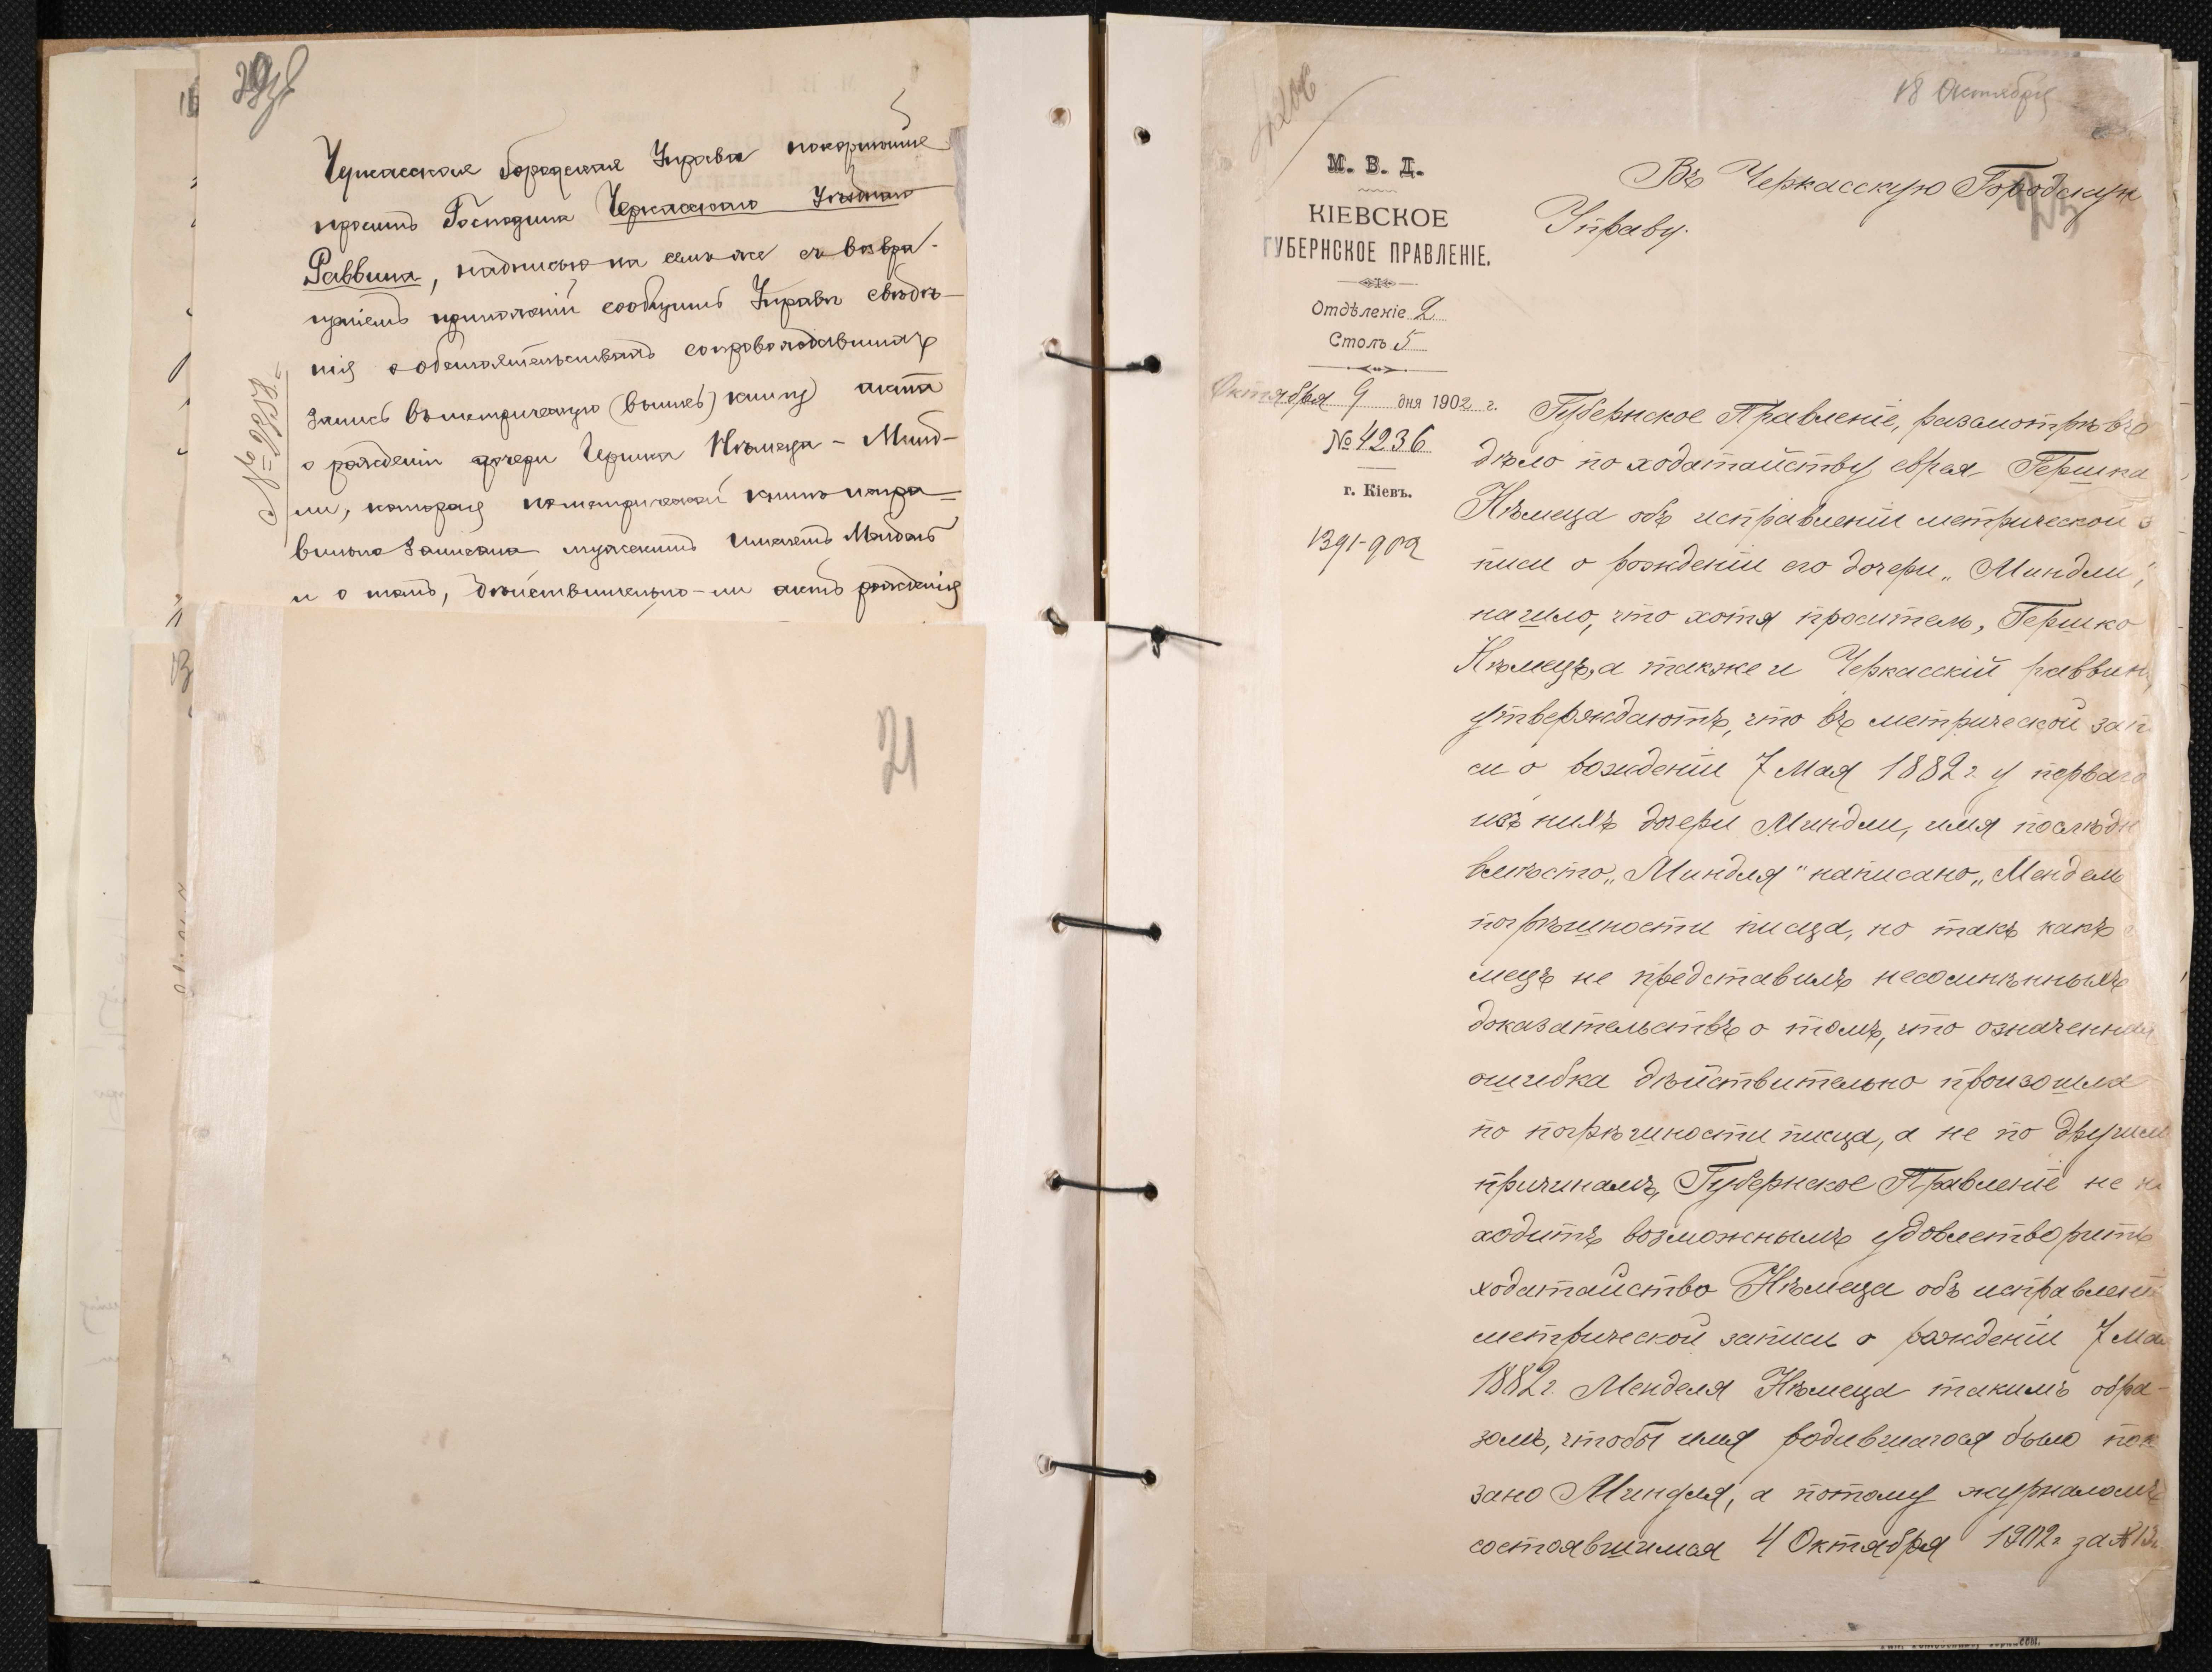 Черкасская Городская Управа покорнѣйше
проситъ Господина Черкасскаго Уѣзднаго
Раввина, надписью на семъ же съ возвра-
щеніемъ приложеній сообщить Управѣ свѣдѣ-
нія о обстоятельствахъ сопровождавшихъ
запись въ метрическую книгу акта
о рожденіи дочери Гершка Нѣмеца - Минд-
ли, которая по метрической книгѣ непра-
вильно записана мужскимъ именемъ Мендель
и о томъ, дѣйствительно-ли актъ рожденія
21
18 Октября
М. В. Д.
КІЕВСКОЕ
ГУБЕРНСКОЕ ПРАВЛЕНІЕ.
Отдѣленіе 2
Столъ 5
Октября 9 дня 1902 г.
№ 4236
г. Кіевъ.
1391-902
Въ Черкасскую Городскую
Управу.
Губернское Правленіе, разсмотрѣвъ
дѣло по ходатайству еврея Гершка
Нѣмеца объ исправленіи метрической за
писи о рожденіи его дочери „Миндли",
нашло, что хотя проситель, Гершко
Нѣмецъ, а также и Черкасскій раввинъ,
утверждаютъ, что въ метрической запи
си о рожденіи 7 Мая 1882 г. у перваго
изъ нихъ дочери Миндли, имя послѣдн
вмѣсто „Миндля" написано „Мендель
погрѣшности писца, но такъ какъ
мецъ не представилъ несомнѣнныхъ
доказательствъ о томъ, что означенная
ошибка дѣйствительно произошла
по погрѣшности писца, а не по другимъ
причинамъ, Губернское Правленіе не на
ходитъ возможнымъ удовлетворить
ходатайство Нѣмеца объ исправлені
метрической записи о рожденіи 7 Мая
1882 г. Менделя Нѣмеца такимъ обра-
зомъ, чтобы имя родившагося было пока
зано Миндля, а потому журналомъ
состоявшимся 4 Октября 1902 г. за №